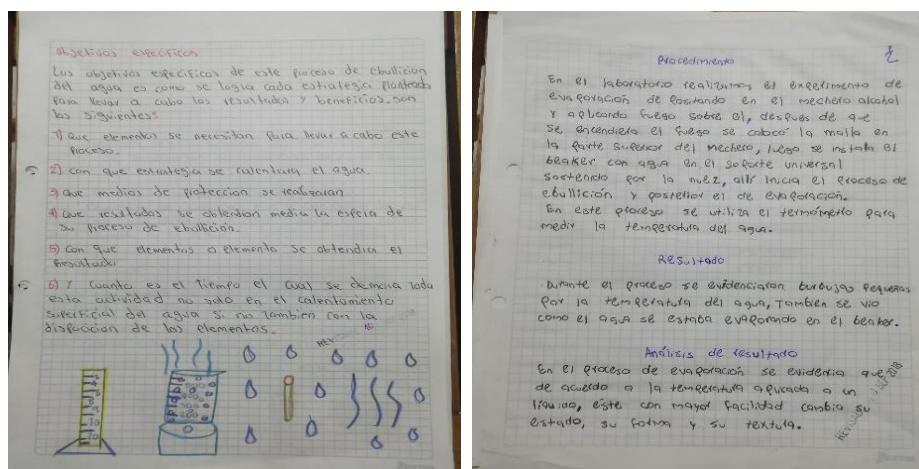 Objetivos especificos
Los objetivos especificos de este proceso de ebullicion
del agua es como se logra cada estrategia planteada
para llevar a cabo los resultados y beneficios. son
los siguientes:
1) Que elementos se necesitan para llevar a cabo este
proceso.
2) con que estrategia se calentara el agua.
3) Que medios de proteccion se trabajaran
4) Que resultados se obtendran media la espera de
su proceso de ebullicion.
5) Con que elementos o elemento se obtendria el
Resultado.
6) Y Cuanto es el Tiempo el cual se demora toda
esta actividad no solo en el calentamiento
superficial del agua si no tambien con la
disposicion de los elementos.
2
Procedimiento
En el laboratorio realizamos el experimento de
evaporación depositando en el mechero alcohol
y aplicando fuego sobre el, después de que
se encendiera el fuego se colocó la malla en
la parte superior del mechero, luego se instala el
beaker con agua en el soporte universal
sostenido por la nuez, allí inicia el proceso de
ebullición y posterior el de evaporación.
En este proceso se utiliza el termómetro para
medir la temperatura del agua.
Resultado
Durante el proceso se evidenciaron burbujas pequeñas
por la temperatura del agua, Tambien se vio
como el agua se estaba evaporando en el beaker.
Análisis de resultado
En el proceso de evaporación se evidencia que
de acuerdo a la temperatura aplicada a un
líquido, éste con mayor facilidad cambia su
estado, su forma y su textura.